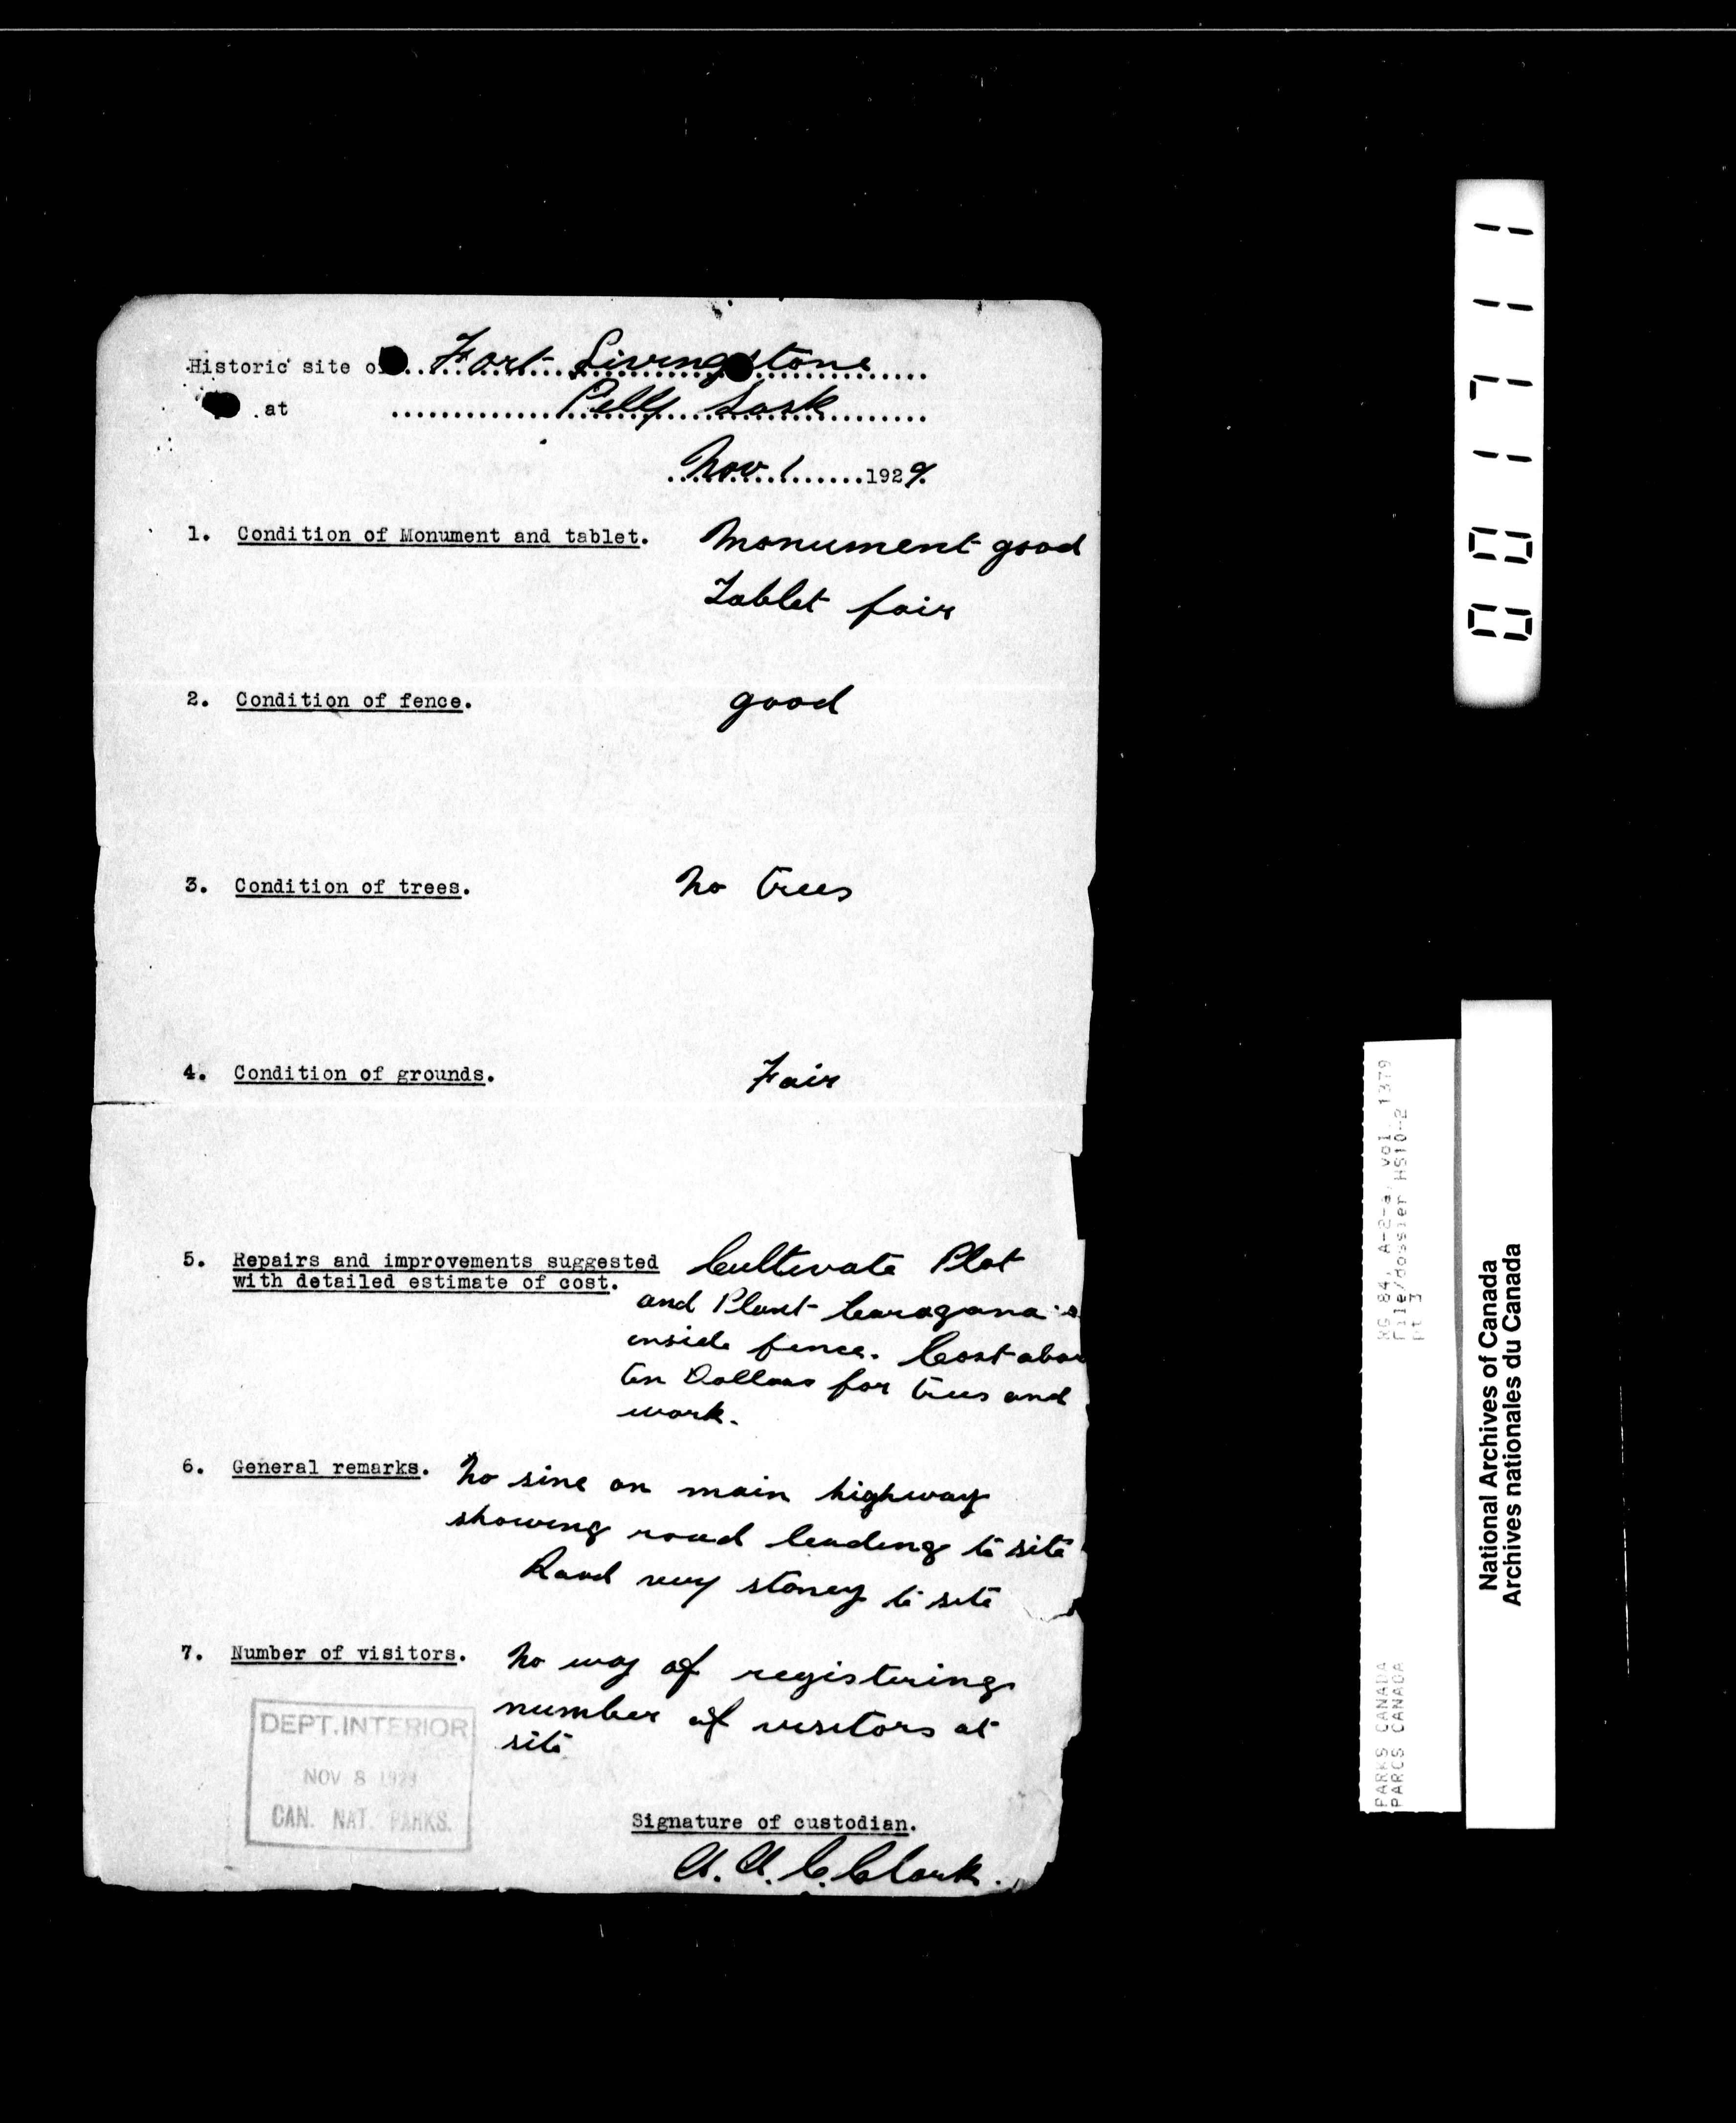 Historic site o.. Fort Livingstone
at Pelly Sask
Nov. 1 1929.
1. Condition of Monument and tablet. Monument good
Tablet fair
2. Condition of fence. good
3. Condition of trees. No trees
4. Condition of grounds. Fair
5. Repairs and improvements suggested Cultivate Plot
with detailed estimate of cost.
and Plant Caragana's
inside fence. Cost abou
ten Dollars for trees and
work.
6. General remarks. No sine on main highway
showing road leading to site
Road very stoney to site
7. Number of visitors. No way of registering
number of visitors at
site
DEPT. INTERIOR
NOV 8 1929
CAN. NAT. PARKS.
Signature of custodian.
A. A. C. Clark.
001711
RG 84, A-2-a, vol. 1379
File/dossier HS10-2
pt 3
PARKS CANADA
PARCS CANADA
National Archives of Canada
Archives nationales du Canada